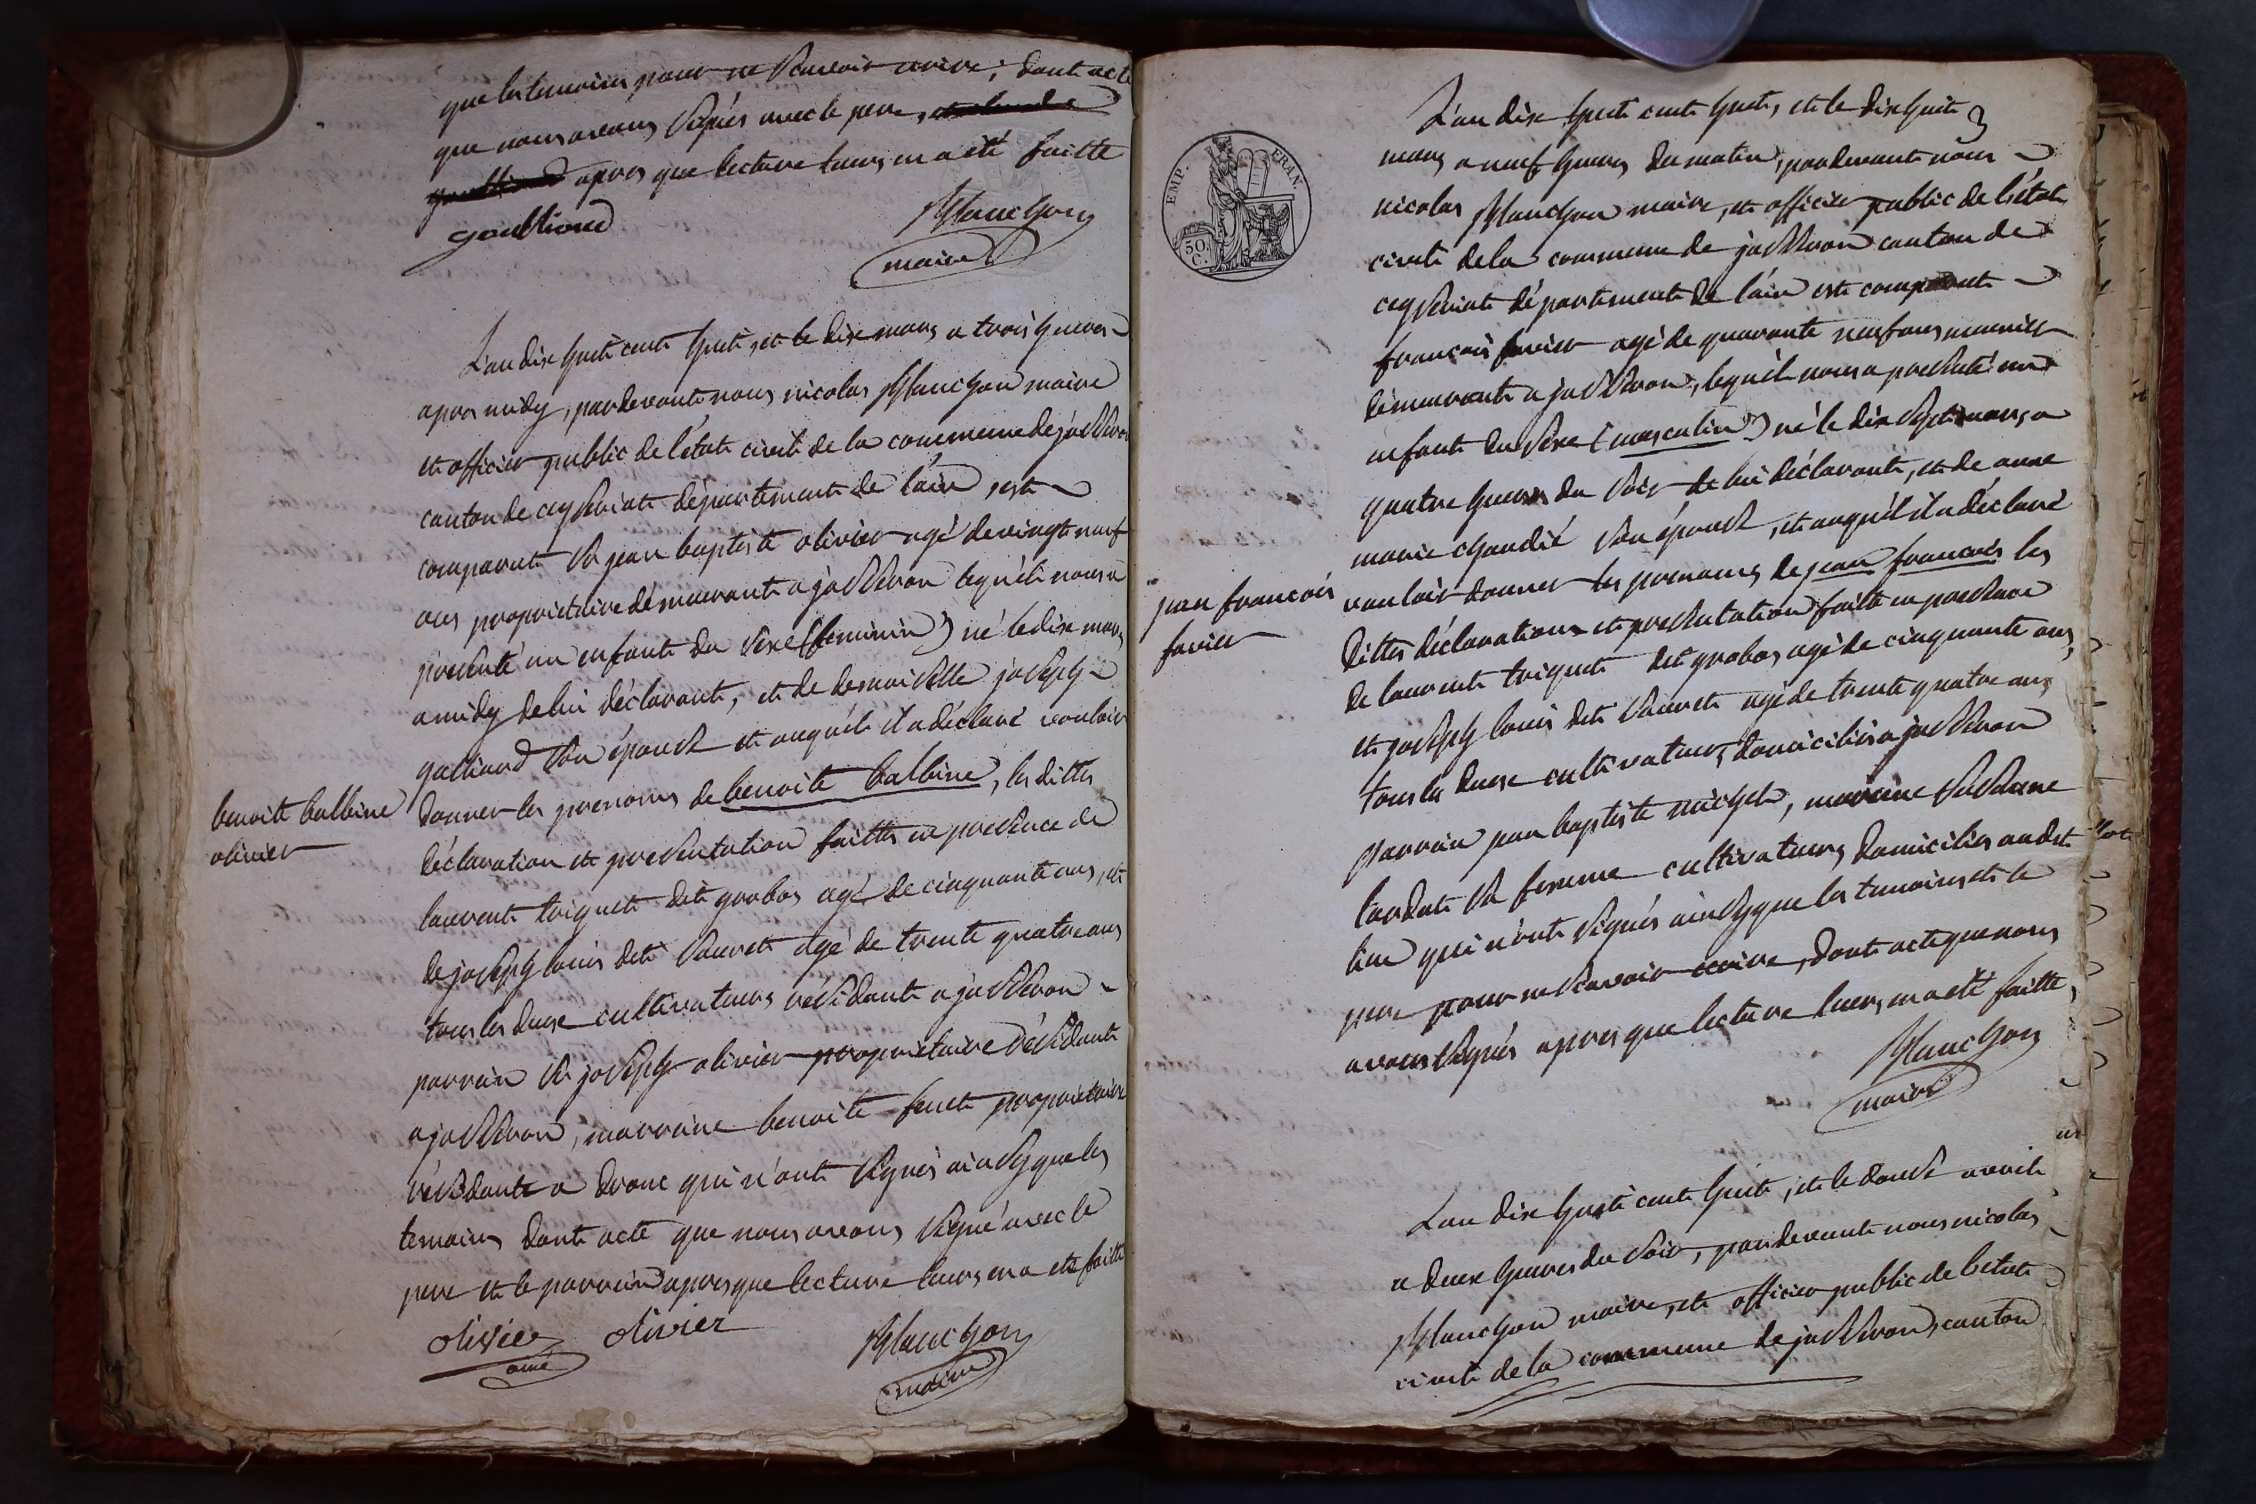 que les temoins pour ne scavoir ecrire; dont acte
que nous avons signés avec le pere,
apres que lecture leurs en a été faitte
goultiond Blanchon
maire
L'an dix huit cent huit, et le dix mars a trois heures
apres midy, pardevant nous nicolas Blanchon maire
et officier public de l'état civil de la commune de jasseron
canton de ceyseriat département de l'ain, est
comparut sr jean baptiste olivier agé de vingt neuf
ans proprietaire démeurant a jasseron lequél nous a
presenté un enfant du sexe (feminin) né le dix mars
a midy de lui déclarant, et de demoiselle joseph
galliand son épouse et auquél il a déclaré vouloir
donner les prenoms de benoite balbine, les dittes
benoite balbine
olivier
déclaration et presentation faittes en presence de
laurent triquet dit grobas agé de cinquante ans, et
de joseph louis dit sauret agé de trente quatre ans
tous les deux cultivateurs résidant a jasseron
parrain sr joseph olivier proprietaire résidant
a jasseron, marraine benoite feuet proprietaire
résidante a drom qui n'ont signés ainsy que les
temoins dont acte que nous avons signé avec le
pere et le parrain apres que lecture leurs en a été faitte
olivier olivier Blanchon
ainé maire
EMP. FRAN.
50. C.
L'an dix huit cent huit, et le dix huit
mars a neuf heures du matin, pardevant nous
nicolas Blanchon maire, et officier public de l'état
civil de la commune de jasseron canton de
ceyseriat département de l'ain est comparut
françois favier agé de quarante neuf ans meunier
démeurant a jasseron, lequél nous a presenté un
enfant du sexe (masculin) né le dix sept mars a
quatre heures du soir de lui déclarant, et de anne
marie chaudié son épouse, et auquél il a déclaré
vouloir donner les prenoms de jean francois les
jean francois
favier
dittes déclaration et presentation faitte en presence
de laurent triquet dit grobas agé de cinquante ans,
et joseph louis dit sauret agé de trente quatre ans
tous les deux cultivateurs domiciliés a jasseron
parrain jean baptiste michel, marraine susanne
sa femme cultivateurs domiciliés audit
lieu qui n'ont signés ainsy que les temoins et le
pere pour ne scavoir ecrire, dont acte que nous
avons signés apres que lecture leurs en a été faitte
Blanchon
maire
L'an dix huit cent huit, et le douse avril
a deux heures du soir, pardevant nous nicolas
Blanchon maire, et officier public de l'etat
civil de la commune de jasseron, canton